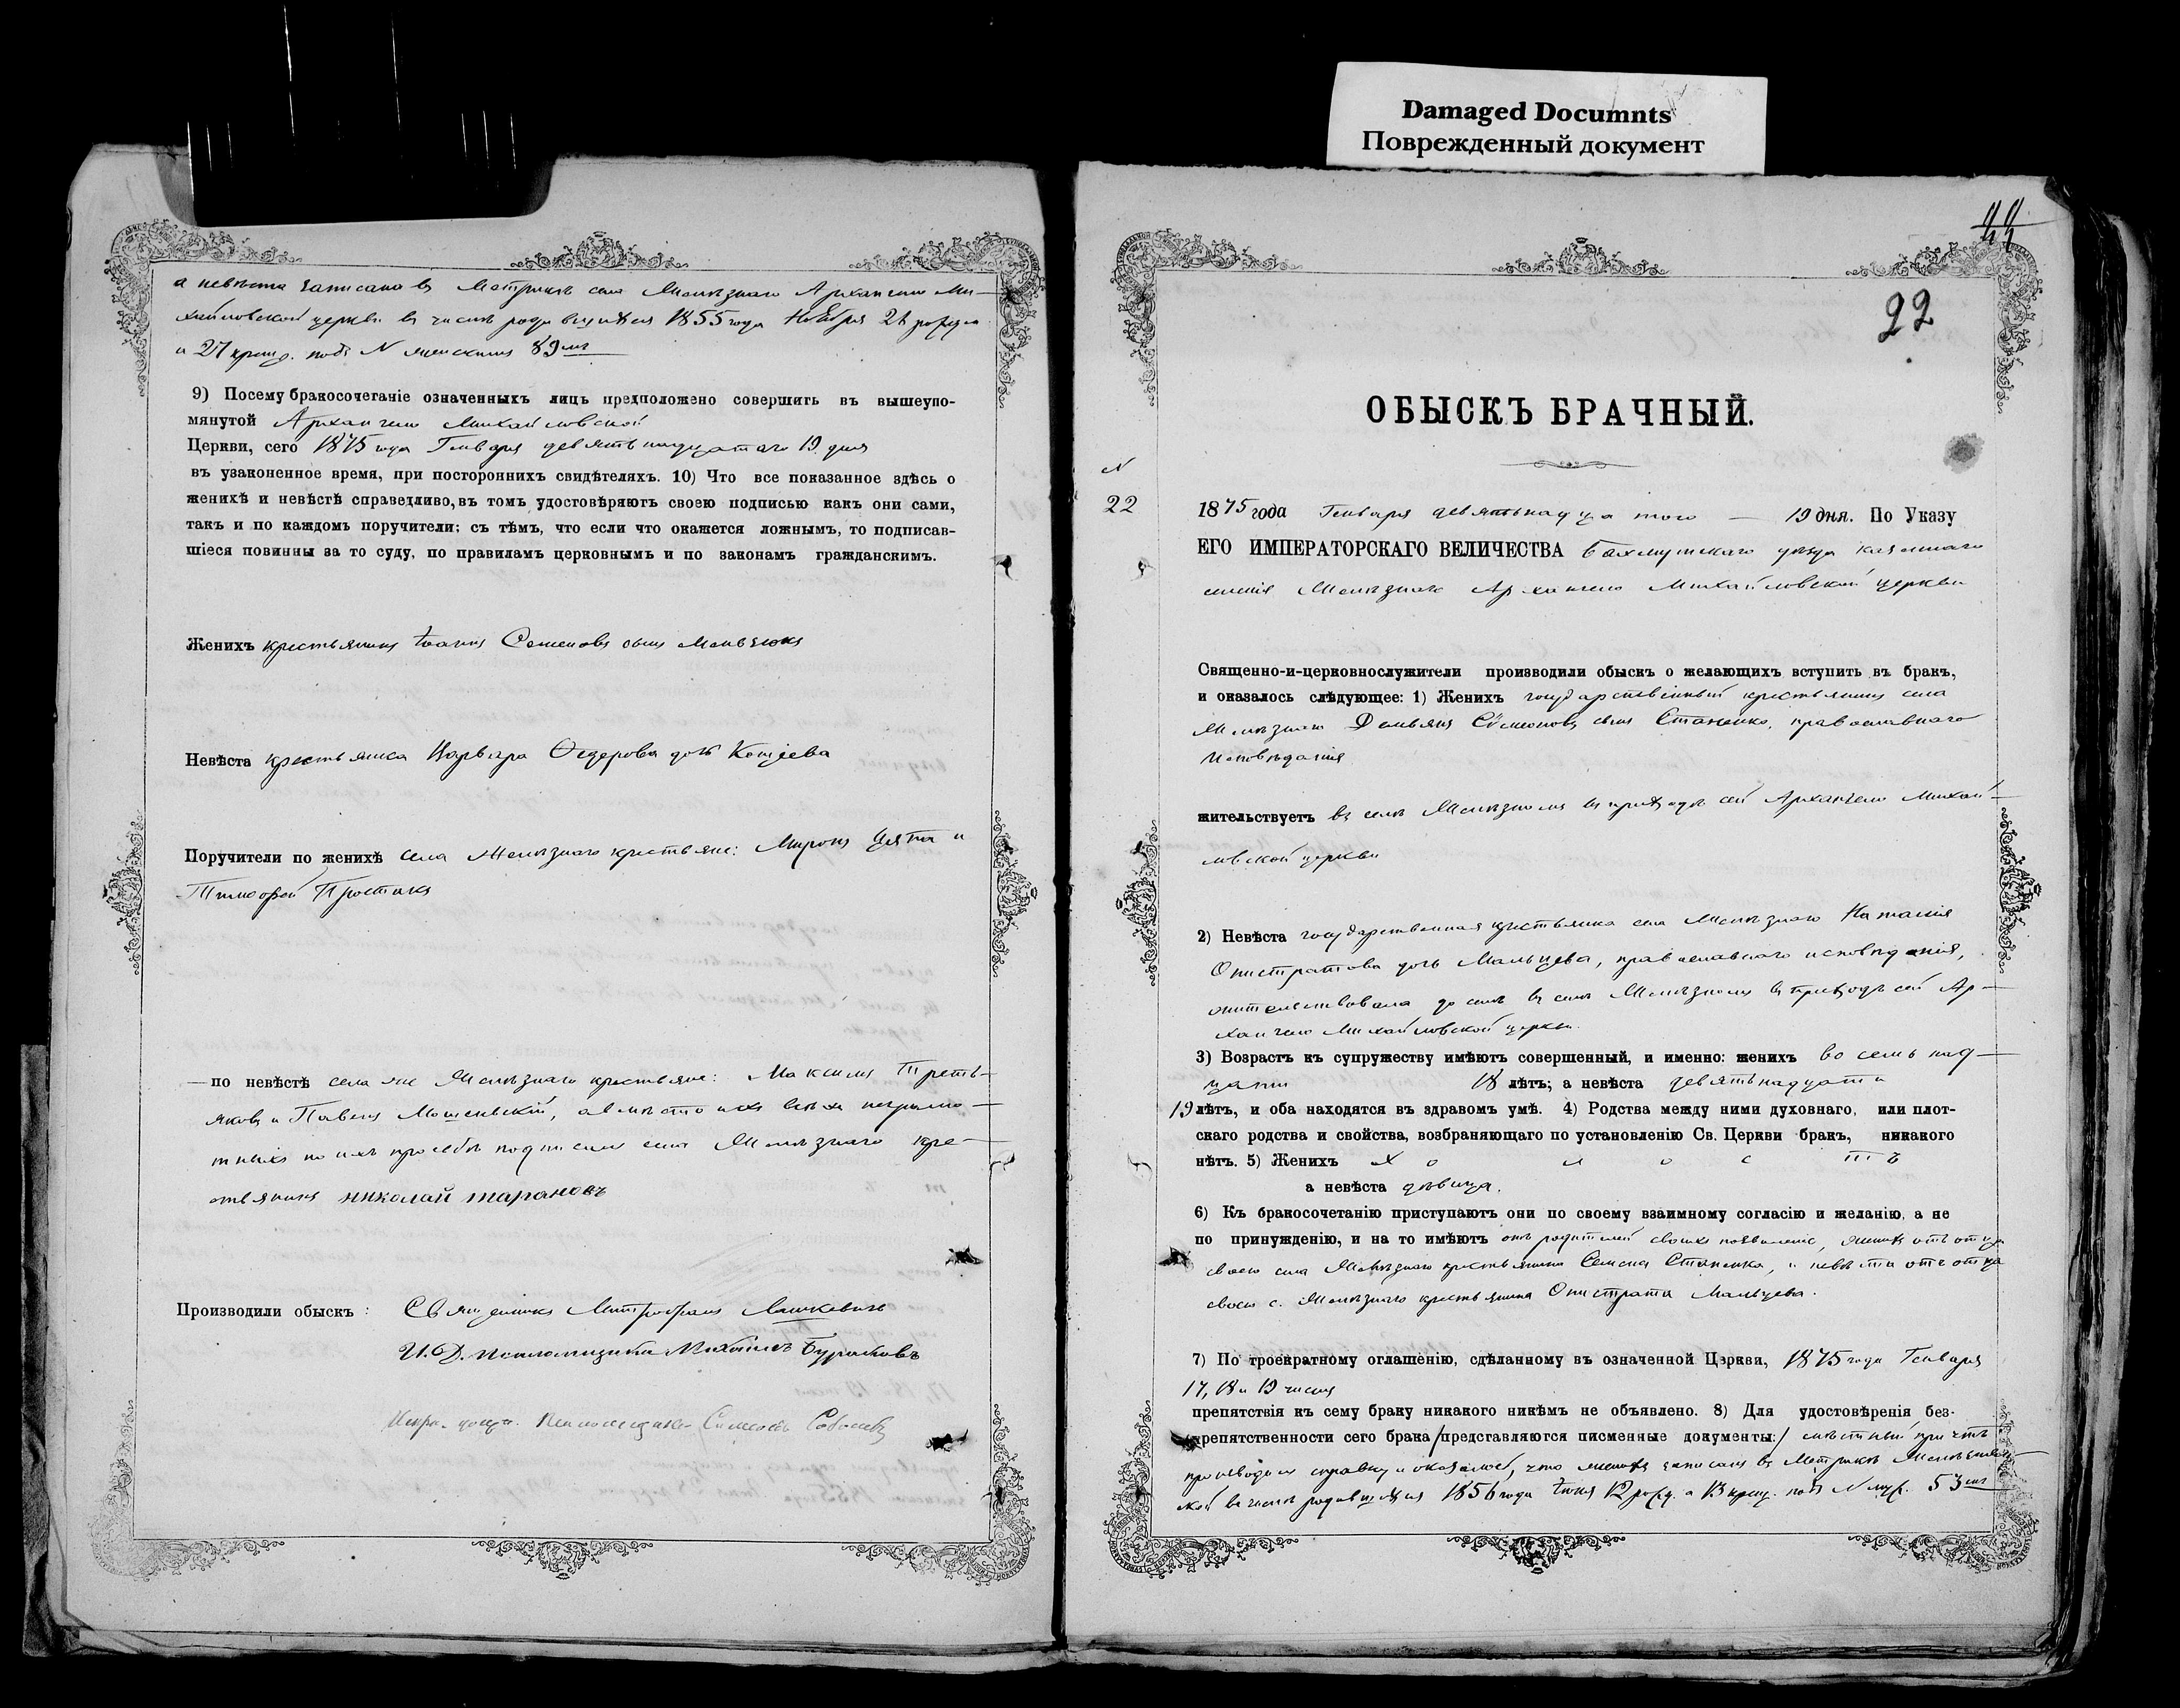 Damaged Documnts
Поврежденный документ
а невѣста записана въ Метрикѣ села Желѣзнаго Архангело Ми-
хайловской церкви въ числѣ родившихся 1855 года Ноября рожд. 
и 27 крещ. подъ N женскимъ 89мъ
9) Посему бракосочетаніе означенныхъ лицъ предположено совершить въ вышеупо-
мянутой Архангело Михайловской
Церкви, сего 1875 года Генваря девятьнадцатаго 19 дня
въ узаконенное время, при постороннихъ свидѣтеляхъ. 10) Что все показанное здѣсь о
женихѣ и невѣстѣ справедливо, въ томъ удостовѣряютъ своею подписью какъ они сами,
такъ и по каждомъ поручители; съ тѣмъ, что если что окажется ложнымъ, то подписав-
шіеся повинны за то суду, по правиламъ церковнымъ и по законамъ гражданскимъ.
Женихъ крестьянинъ Іоаннъ Семеновъ сынъ
Невѣста крестьянка Варвара Ѳедорова дочь Кощеева
Поручители по женихѣ села Желѣзнаго крестьяне: Миронъ Цята и
Тимофей Простакъ
— по невѣстѣ села же Желѣзнаго крестьяне: Максимъ Треть-
яковъ и Павелъ а вмѣсто ихъ всѣхъ неграмо-
тныхъ по ихъ прозьбѣ подписалъ села Желѣзнаго кре-
стьянинъ николай тарановъ
Производили обыскъ: Священникъ Митрофанъ Лашкевичъ
И. Д. Псаломщика Михаилъ Бураковъ
Испр. должн. Псаломщика Симеонъ
44
22
ОБЫСКЪ БРАЧНЫЙ.
N
22
1875 года Генваря девятьнадцатого — 19 дня. По Указу
ЕГО ИМПЕРАТОРСКАГО ВЕЛИЧЕСТВА Бахмутскаго уѣзда казеннаго
селенія Желѣзнаго Архангело Михайловской церкви
Священно-и-церковнослужители производили обыскъ о желающихъ вступить въ бракъ,
и оказалось слѣдующее: 1) Женихъ государственный крестьянинъ села
Желѣзнаго Демьянъ Симеоновъ сынъ Стаценко, православнаго
исповѣданія
жительствуетъ въ селѣ Желѣзномъ въ приходѣ сей Архангело Михай-
ловской церкви
2) Невѣста государственная крестьянка села Желѣзнаго Наталія
Онистратова дочь Мальцева, православнаго исповѣданія,
жительствовала до селѣ въ селѣ Желѣзномъ въ приходѣ сей Ар-
хангело Михайловской церкви.
3) Возрастъ къ супружеству имѣютъ совершенный, и именно: женихъ восемьнад-
цати 18 лѣтъ; а невѣста девятьнадцати
19 лѣтъ, и оба находятся въ здравомъ умѣ. 4) Родства между ними духовнаго, или плот-
скаго родства и свойства, возбраняющаго по установленію Св. Церкви бракъ, никакого
нѣтъ. 5) Женихъ х о л о с тъ
а невѣста дѣвица.
6) Къ бракосочетанію приступаютъ они по своему взаимному согласію и желанію, а не
по принужденію, и на то имѣютъ отъ родителей своихъ позволеніе, женихъ отъ отца
своего села Желѣзнаго крестьянина Семена Стаценка, а невѣста отъ отца
своего с. Желѣзнаго крестьянина Онистрата Мальцева.
7) По троекратному оглашенію, сдѣланному въ означенной Церкви, 1875 года Генваря
17, 18 и 19 чиселъ
препятствія къ сему браку никакого никѣмъ не объявлено. 8) Для удостовѣренія без-
препятственности сего брака /представляются писменные документы:/ мѣстный причтъ
производилъ справку и оказалось, что женихъ записанъ въ Метрикѣ
въ числѣ родившихся 1856 года Іюня 12 рожд. а 13 крещ. подъ N муж. 53мъ